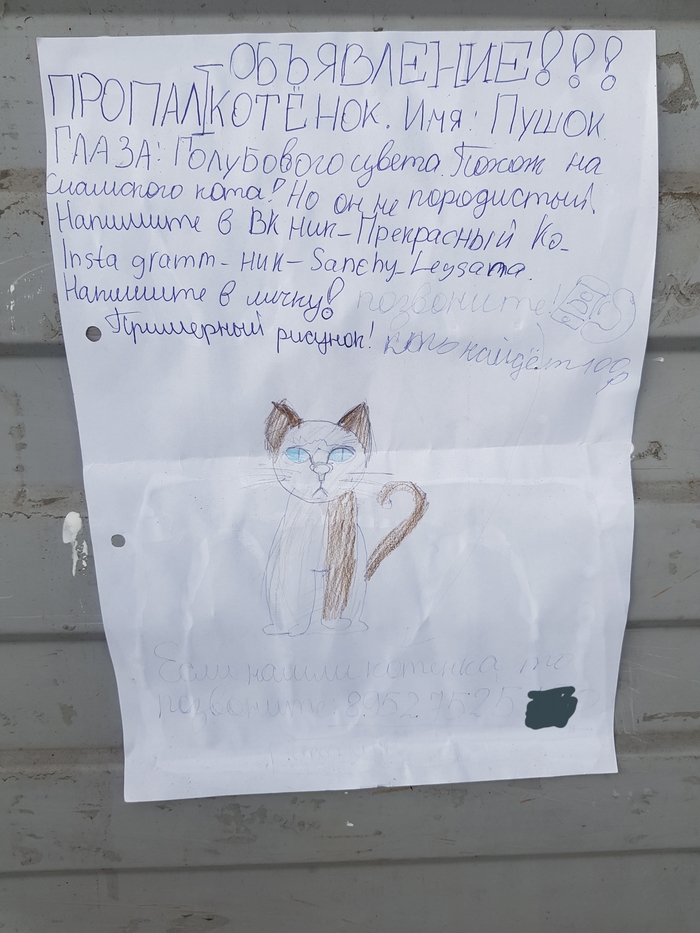 ОБЪЯВЛЕНИЕ!!!
ПРОПАЛ КОТЁНОК. Имя: Пушок
ГЛАЗА: Голубового цвета. Похож на
сиамского кота! Но он не породистый.
Напишите в ВК ник-Прекрасный Ко-
Insta gramm-ник-Sanchy_Leysama.
Напишите в личку! позвоните!
Примерный рисунок! кто найдёт 100 р
Если нашли котёнка то
позвоните: 89527525